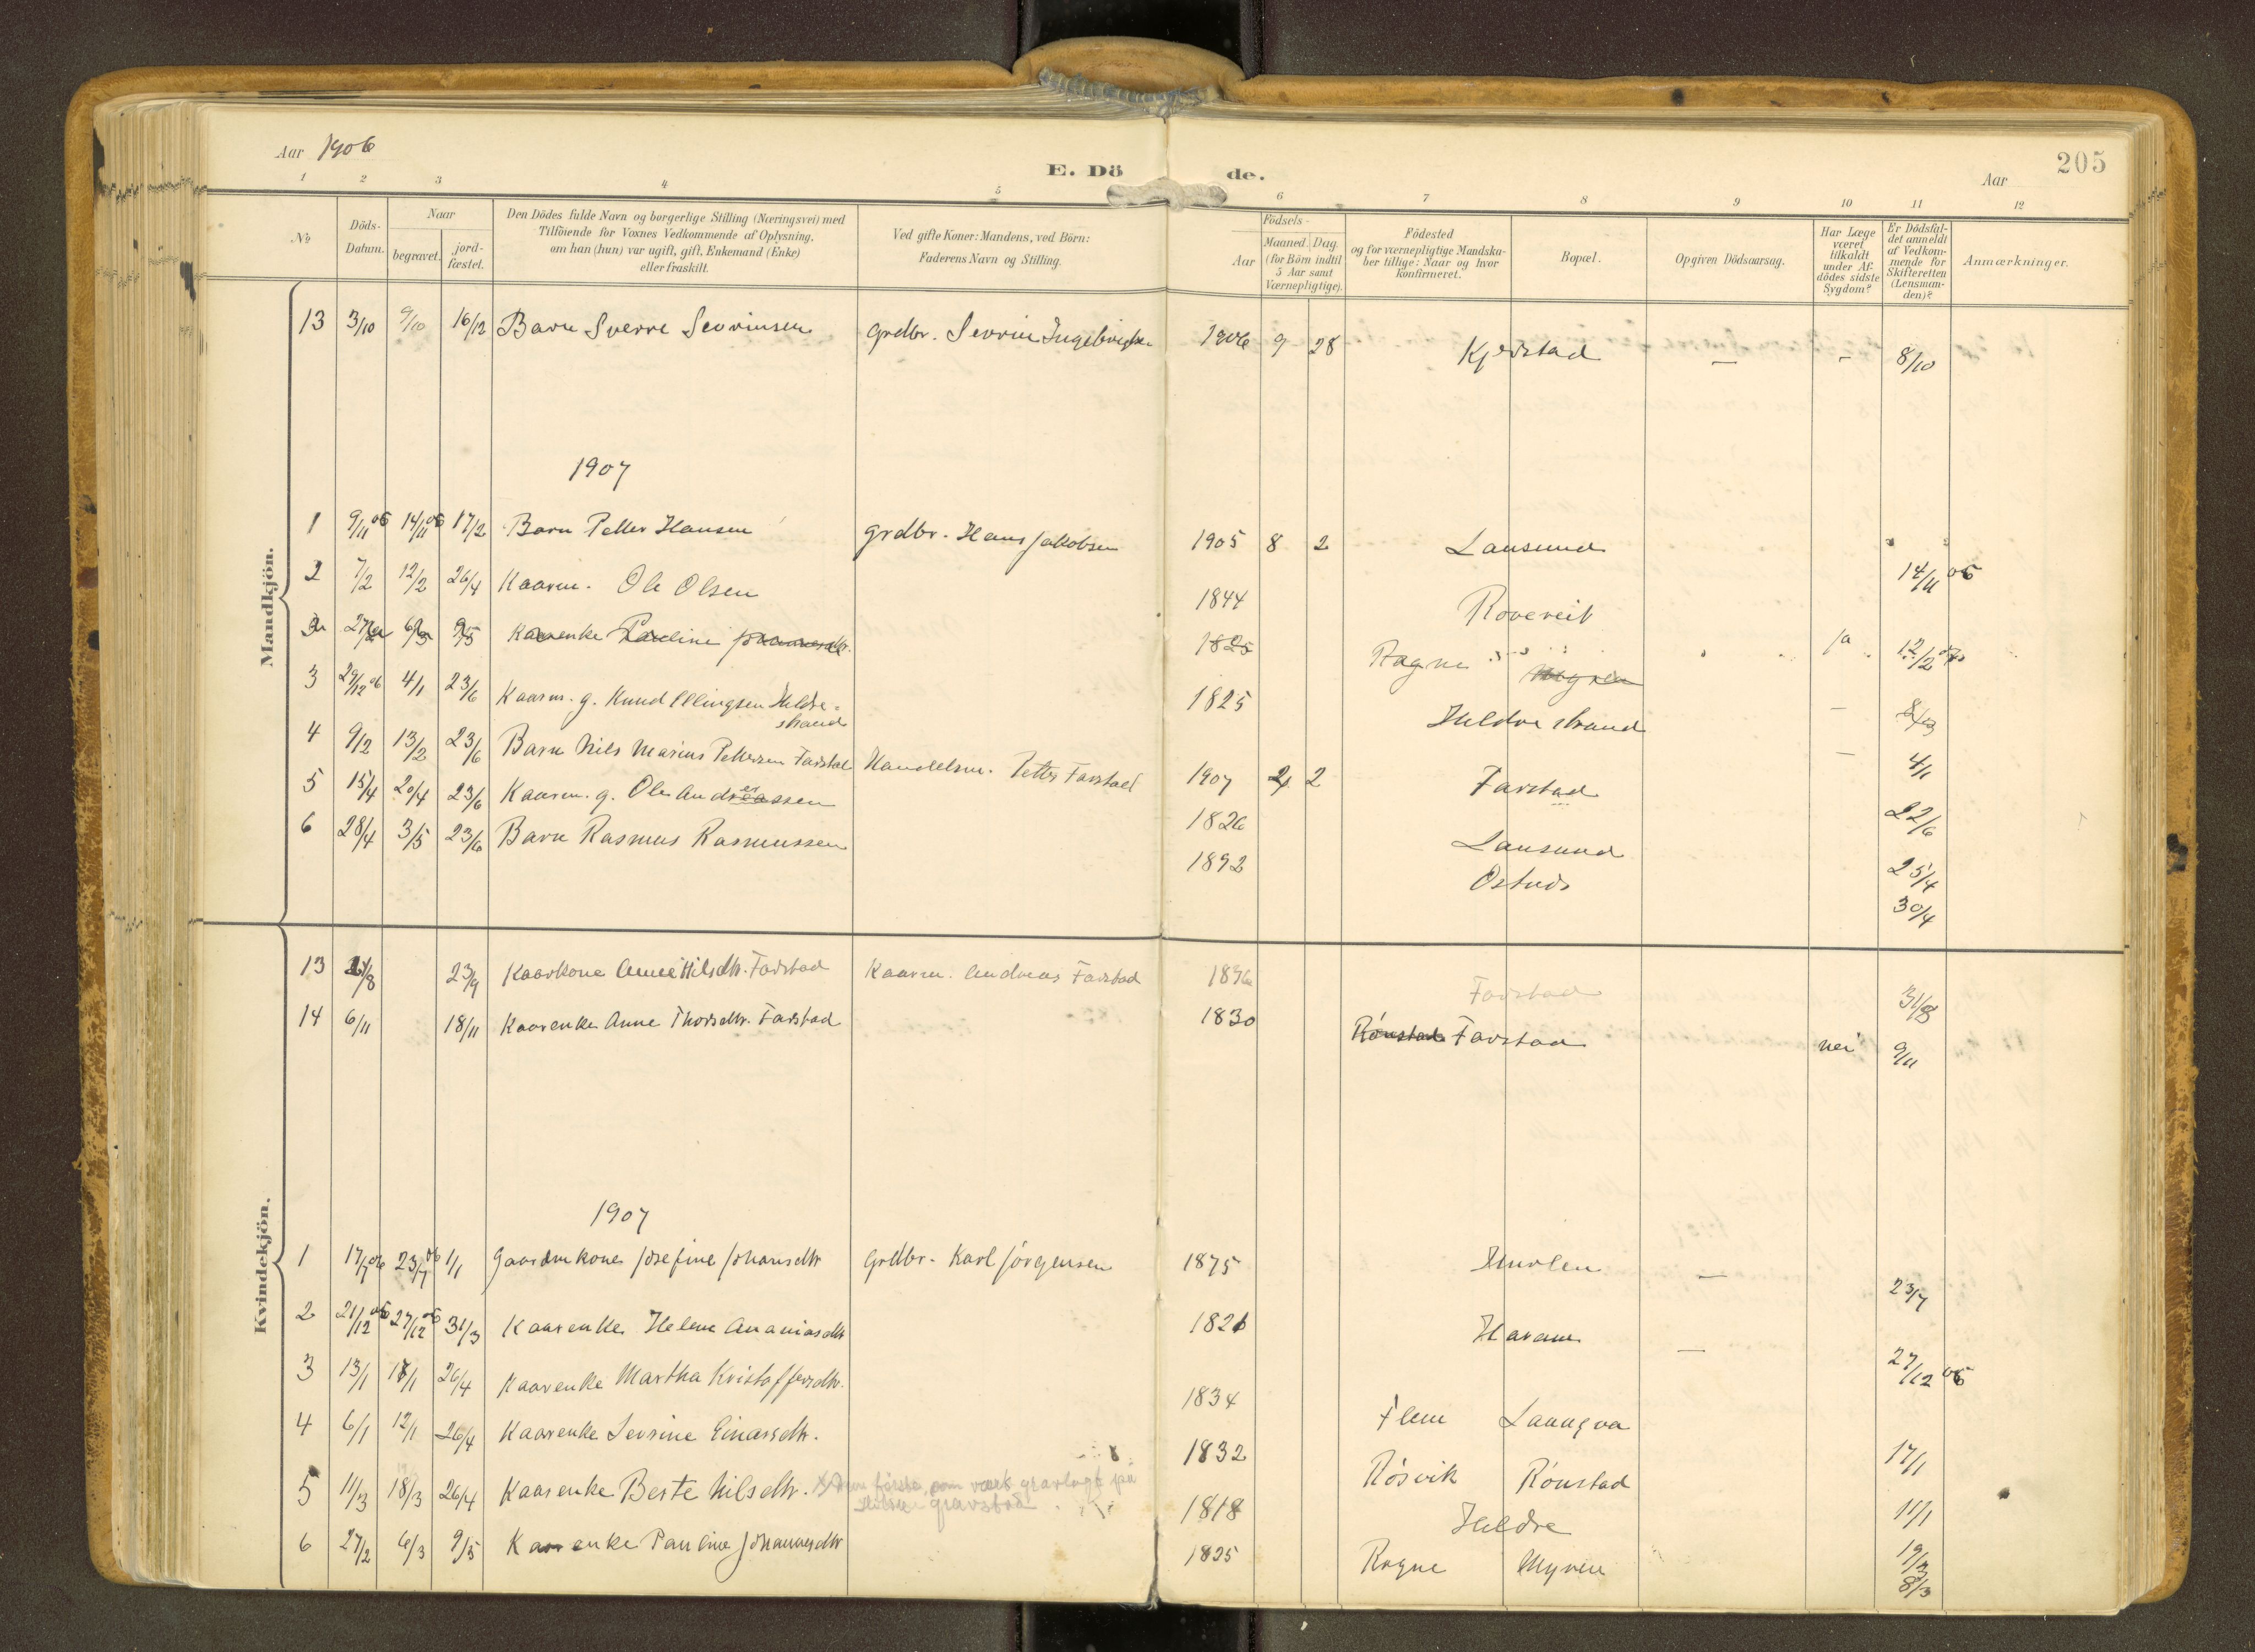 Aar 1906
E. Dö de.
Aar
205
1 2 3 4 5 6 7 8 9 10 11 12
No
Döds-Datum.
Naar
begravet.
jord-fæstet.
Den Dödes fulde Navn og borgerlige Stilling (Næringsvei) med
Tilföiende for Voxnes Vedkommende af Oplysning,
om han (hun) var ugift, gift, Enkemand (Enke)
eller fraskilt.
Ved gifte Koner: Mandens, ved Börn:
Faderens Navn og Stilling.
Födsels-
Aar
Maaned. Dag
(for Börn indtil
5 Aar samt
Værnepligtige).
Födested
og for værnepligtige Mandska-
ber tillige: Naar og hvor
konfirmeret.
Bopæl.
Opgiven Dödsaarsag.
Har Læge
været
tilkaldt
under Af-
dödes sidste
Sygdom?
Er Dödsfal-
det anmeldt
af Vedkom-
mende for
Skifteretten
(Lensman-
den)?
Anmærkninger.
Mandkjön.
13 3/10 9/10 16/12 Barn Sverre Sevrinsen Grdbr. Sevrin Ingebrigtsen 1906 9 28 Kjerstad — - 8/10
1907
1 9/11 06 14/11 06 17/2 Barn Petter Hansen grdbr. Hans Jakobsen 1905 8 2 Lausund 14/11 06
2 7/2 12/2 26/4 Kaarm. Ole Olsen 1844 Rovereit ja 12/2 07
3 27/2 6/3 9/5 Kaarenke Pauline Johannesdtr. 1825 Rogne Myren - 8/3
3 29/12 06 4/1 23/6 Kaarm. g. Knud Ellingsen Hildre=
strand 1825 Hildre strand — 4/1
4 9/2 13/2 23/6 Barn Nils Marius Pettersen Farstad Handelsm. Petter Farstad 1907 2 2 Farstad 22/6
5 15/4 20/4 23/6 Kaarm. g. Ole Andreassen 1826 Lausund 25/4
6 28/4 3/5 23/6 Barn Rasmus Rasmussen 1892 30/4
Kvindekjön.
13 23/9 Kaarkone Anne Nilsdtr. Farstad Kaarm. Andreas Farstad 1836 Farstad 31/8
14 6/11 18/11 Kaarenke Anne Thorsdtr. Farstad 1830 Rönstad Farstad nei 9/11
1907
1 17/7 06 23/7 06 1/1 Gaardmkone Josefine Johansdtr Grdbr. Karl Jörgensen 1875 Hurlen — 23/7
2 21/12 06 27/12 06 31/3 Kaarenke Helene Ananiasdtr 1826 Haram — 27/12 06
3 13/1 17/1 26/4 Kaarenke Martha Kristoffersdtr. 1834 Flem Laungva 17/1
4 6/1 12/1 26/4 Kaarenke Sevrine Einarsdtr. 1832 Rösvik Rönstad 11/1
5 11/3 18/3 26/4 Kaarenke Berte Nilsdtr. Den förste, som vart gravlagt på
Hildre gravstad 1818 Hildre 19/3
6 27/2 6/3 9/5 Kaarenke Pauline Johannesdtr 1825 Rogne Myren 8/3